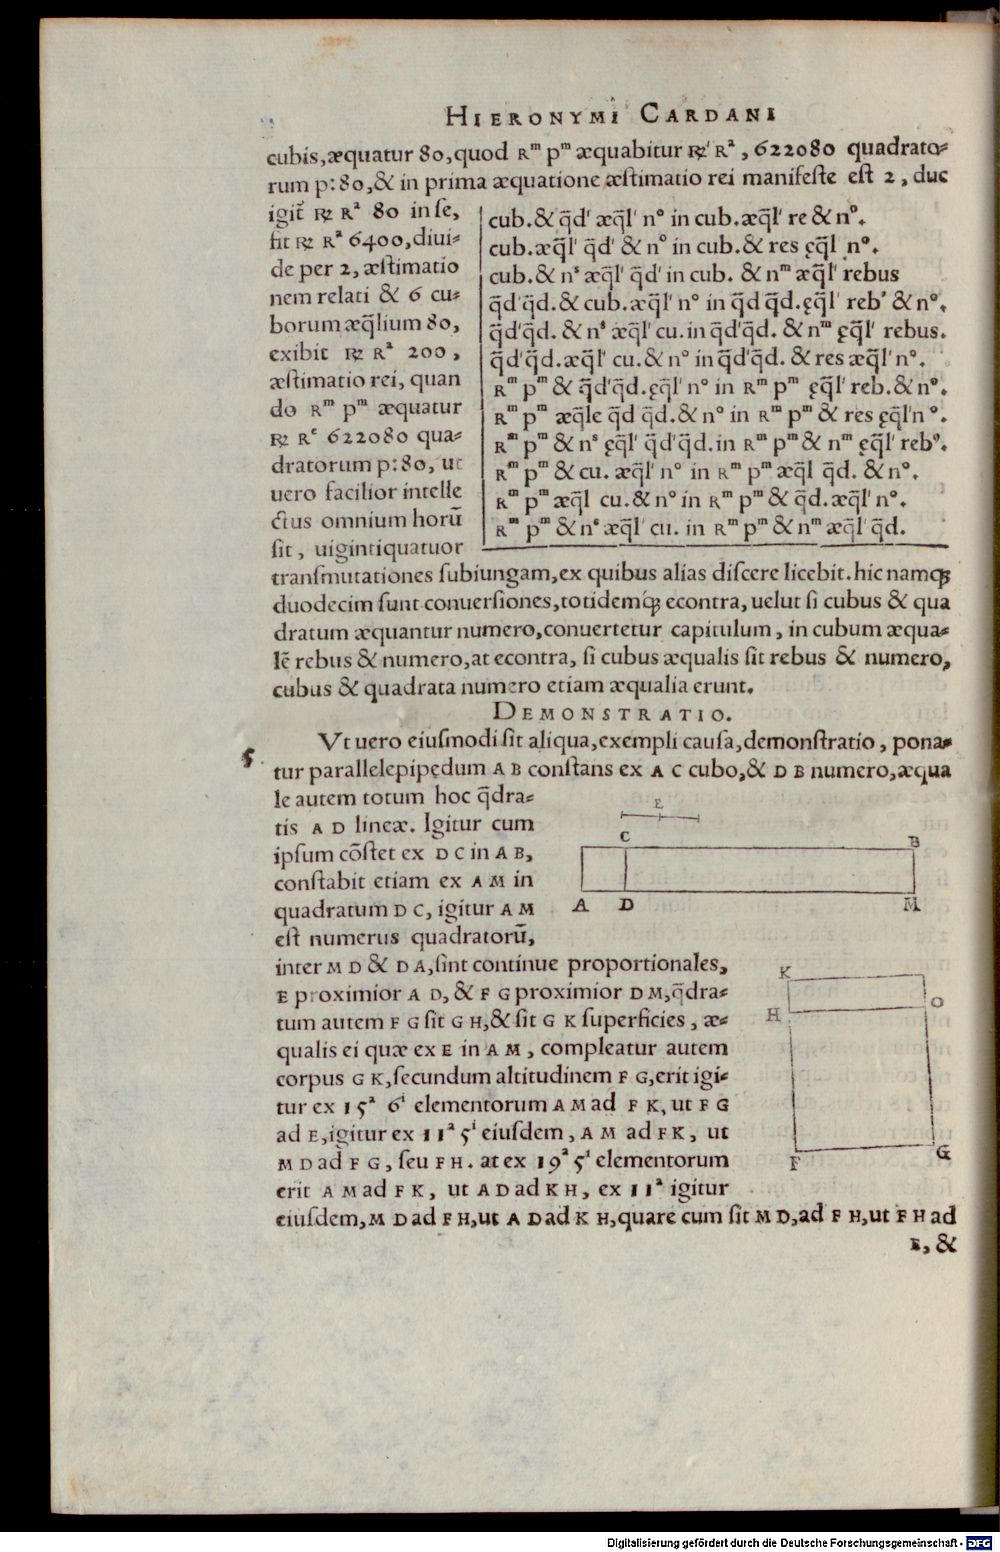 HIERONYMI CARDANI
cubis, æquatur 80, quod Rᵐ pᵐ æquabitur ℞ Rᵃ, 622080 quadrato⸗
rum p: 80, & in prima æquatione æstimatio rei manifeste est 2, duc
igit̃ ℞ Rᵃ 80 in se,
fit ℞ Rᵃ 6400, diui⸗
de per 2, æstimatio
nem relati & 6 cu⸗
borum æq̃lium 80,
exibit ℞ Rᵃ 200,
æstimatio rei, quan
do Rᵐ pᵐ æquatur
℞ Rᵉ 622080 qua⸗
dratorum p: 80, ut
uero facilior intelle
ctus omnium horũ
sit, uigintiquatuor
cub. & q̃d' æq̃l' nᵒ in cub. æq̃l' re & nᵒ.
cub. æq̃l' q̃d' & nᵒ in cub. & res ęq̃l nᵒ.
cub. & nˢ æq̃l' q̃d' in cub. & nᵐ æq̃l' rebus
q̃d' q̃d. & cub. æq̃l' nᵒ in q̃d q̃d. ęq̃l' reb' & nᵒ.
q̃d' q̃d. & nˢ æq̃l' cu. in q̃d' q̃d. & nᵐ ęq̃l' rebus.
q̃d' q̃d. æq̃l' cu. & nᵒ in q̃d' q̃d. & res æq̃l' nᵒ.
Rᵐ pᵐ & q̃d' q̃d. ęq̃l' nᵒ in Rᵐ pᵐ ęq̃l' reb. & nᵒ.
Rᵐ pᵐ æq̃le q̃d q̃d. & nᵒ in Rᵐ pᵐ & res ęq̃l' nᵒ.
Rᵐ pᵐ & nˢ ęq̃l' q̃d' q̃d. in Rᵐ pᵐ & nᵐ ęq̃l' reb⁹.
Rᵐ pᵐ & cu. æq̃l' nᵒ in Rᵐ pᵐ æq̃l q̃d. & nᵒ.
Rᵐ pᵐ æq̃l cu. & nᵒ in Rᵐ pᵐ & q̃d. æq̃l' nᵒ.
Rᵐ pᵐ & nˢ æq̃l' cu. in Rᵐ pᵐ & nᵐ æq̃l' q̃d.
transmutationes subiungam, ex quibus alias discere licebit. hic namq̃;
duodecim sunt conuersiones, totidemq̃; econtra, uelut si cubus & qua
dratum æquantur numero, conuertetur capitulum, in cubum æqua⸗
lẽ rebus & numero, at econtra, si cubus æqualis sit rebus & numero,
cubus & quadrata numero etiam æqualia erunt.
DEMONSTRATIO.
Vt uero eiusmodi sit aliqua, exempli causa, demonstratio, pona⸗
5
tur parallelepipedum A B constans ex A C cubo, & D B numero, æqua
le autem totum hoc q̃dra⸗
tis A D lineæ. Igitur cum
ipsum cõstet ex D C in A B,
constabit etiam ex A M in
quadratum D C, igitur A M
est numerus quadratorũ,
E
C
B
A
D
M
inter M D & D A, sint continue proportionales,
E proximior A D, & F G proximior D M, q̃dra⸗
tum autem F G sit G H, & sit G K superficies, æ⸗
qualis ei quæ ex E in A M, compleatur autem
corpus G K, secundum altitudinem F G, erit igi⸗
tur ex 15ᵃ 6ⁱ elementorum A M ad F K, ut F G
ad E, igitur ex 11ᵃ 5ⁱ eiusdem, A M ad F K, ut
M D ad F G, seu F H. at ex 19ᵃ 5ⁱ elementorum
erit A M ad F K, ut A D ad K H, ex 11ᵃ igitur
K
O
H
F
G
eiusdem, M D ad F H, ut A D ad K H, quare cum sit M D, ad F H, ut F H ad
E, &
Digitalisierung gefördert durch die Deutsche Forschungsgemeinschaft - DFG